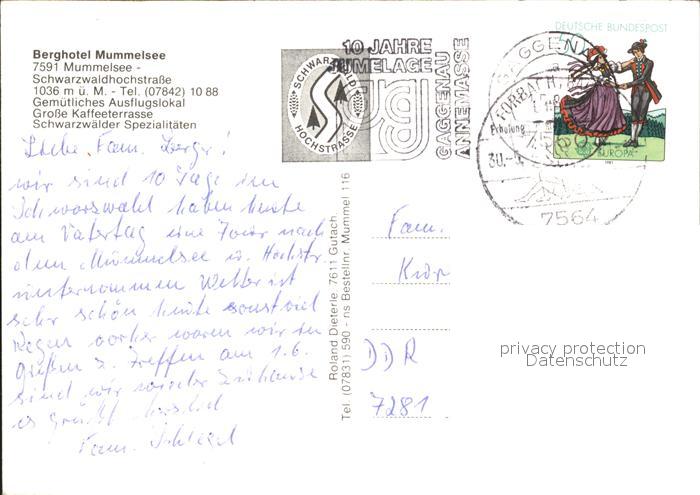 Berghotel Mummelsee
7591 Mummelsee -
Schwarzwaldhochstraße
1036 m ü. M. - Tel. (07842) 10 88
Gemütliches Ausflugslokal
Große Kaffeeterrasse
Schwarzwälder Spezialitäten
SCHWARZWALD
HOCHSTRASSE
10 JAHRE
JUMELAGE
GAGGENAU
ANNEMASSE
GAGGENAU
FORBACH
Erholung
30.-5.
7564
DEUTSCHE BUNDESPOST
EUROPA
1981
Liebe Fam.
wir sind 10 Tage im
Schwarzwald haben heute
am Vatertag eine Tour nach
dem Mummelsee u. Hochstr.
unternommen Wetter ist
sehr schön heute sonst viel
Regen vorher waren wir in
z. Treffen am 1.6.
sind wir wieder Zuhause
es grüßt herzlich
Fam.
Roland Dieterle, 7611 Gutach
Tel. (07831) 590 - ns Bestellnr. Mummel 116
Fam.
DDR
7281
privacy protection
Datenschutz